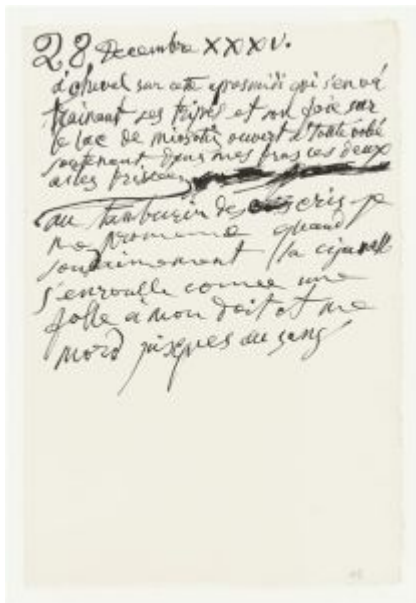 28 decembre XXXV.
à cheval sur cette apresmidi qui s'en va
trainant ses tripes et son foie sur
le lac de miosotis ouvert à toute
soutenant dans mes bras ces deux
ailes brisees
au tamburin des cris je
me promene quand
soudainement la
s'enroulle comme une
folle a mon doit et me
mord jusques au sang